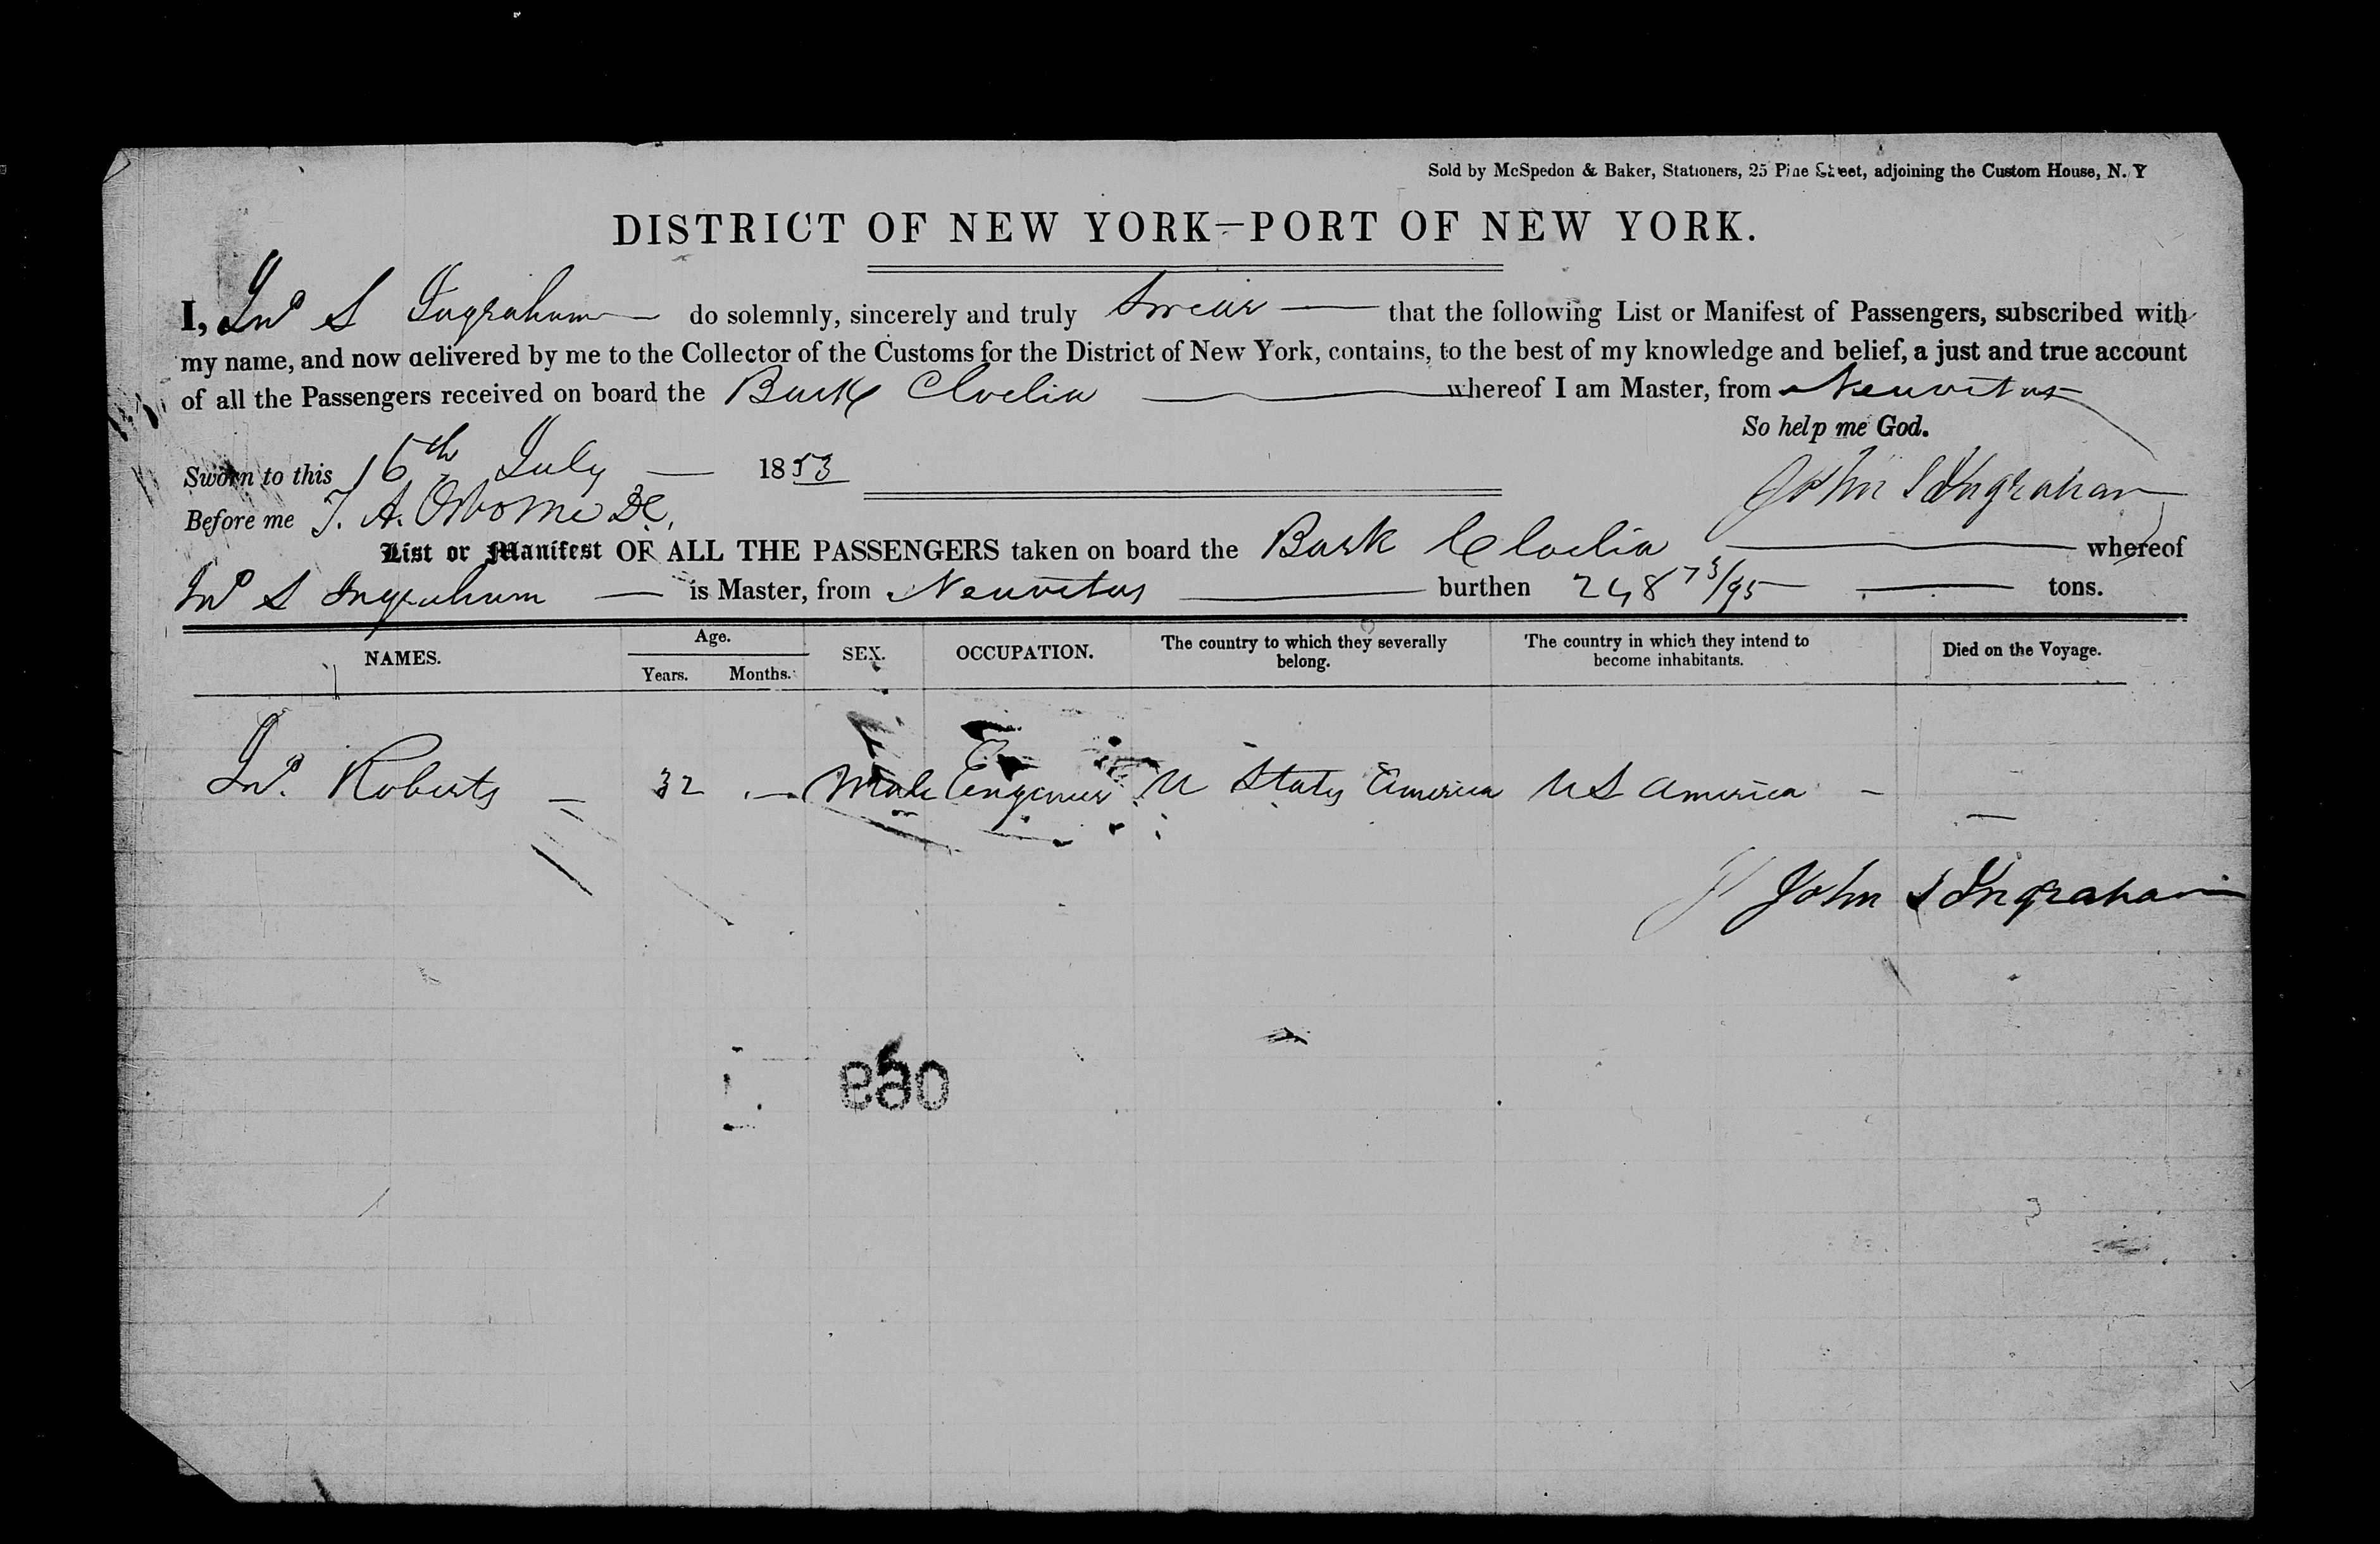 Sold by McSpedon & Baker, Stationers, 25 Pine Street, adjoining the Custom House, N. Y
DISTRICT OF NEW YORK—PORT OF NEW YORK.
I, Jno S Ingraham — do solemnly, sincerely and truly Swear — that the following List or Manifest of Passengers, subscribed with
my name, and now delivered by me to the Collector of the Customs for the District of New York, contains, to the best of my knowledge and belief, a just and true account
of all the Passengers received on board the Bark Cloelia — whereof I am Master, from Neuvitas
So help me God.
Sworn to this 16th July — 1853
John S Ingraham
Before me T. A. Osborne DC,
List or Manifest OF ALL THE PASSENGERS taken on board the Bark Cloelia — whereof
Jno S Ingraham — is Master, from Neuvitas — burthen 248 73/95 — tons.
NAMES. Age. Years. Months. SEX. OCCUPATION. The country to which they severally belong. The country in which they intend to become inhabitants. Died on the Voyage.
Jno. Roberts — 32 — Male Engenier U States America U S America — —
John S Ingraham